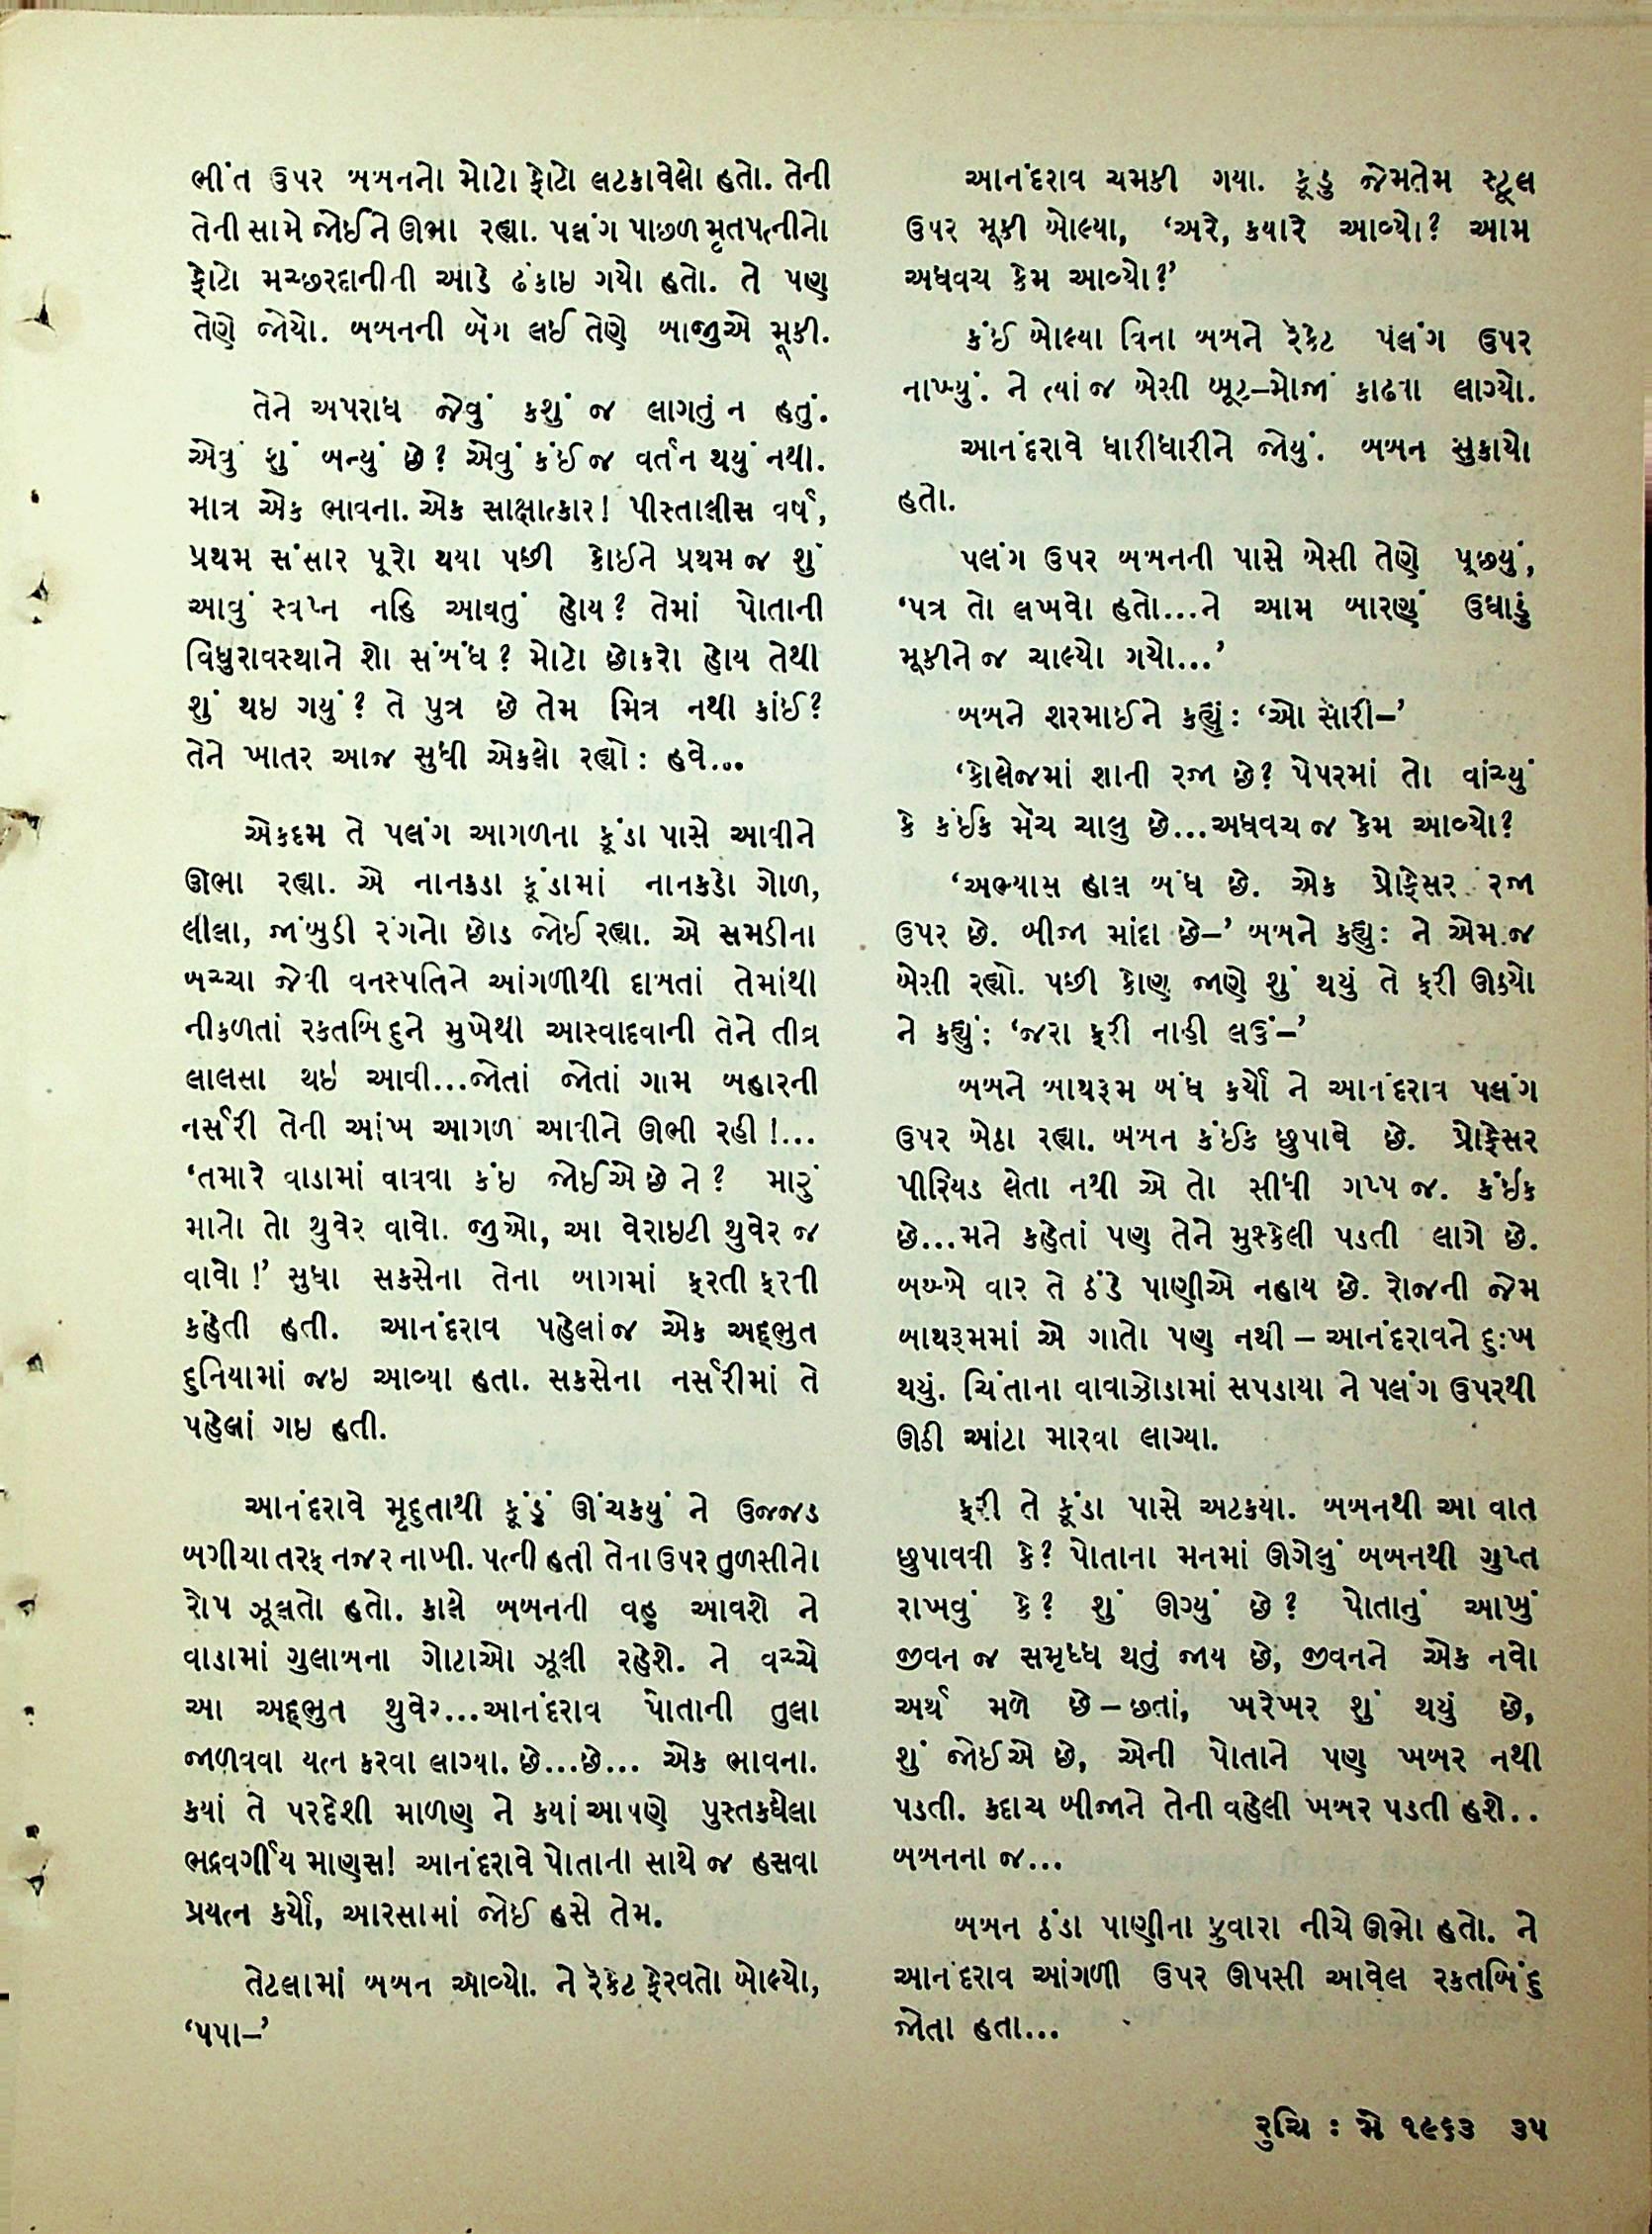 ભીંત ઉપર બબનનો મોટો ફોટો લટકાવેલો હતો. તેની
તેની સામે જોઈને ઊભા રહ્યા. પલંગ પાછળ મૃતપત્નીનો
ફોટો મચ્છરદાનીની આડે ઢંકાઇ ગયો હતો. તે પણ
તેણે જોયો. બબનની બૅગ લઈ તેણે બાજુએ મૂકી.
તેને અપરાધ જેવું કશું જ લાગતું ન હતું.
એવું શું બન્યું છે? એવું કંઈ જ વર્તન થયું નથી.
માત્ર એક ભાવના. એક સાક્ષાત્કાર! પીસ્તાલીસ વર્ષે,
પ્રથમ સંસાર પૂરો થયા પછી કોઇને પ્રથમ જ શું
આવું સ્વપ્ન નહિ આવતું હોય? તેમાં પોતાની
વિધુરાવસ્થાને શો સંબંધ? મોટો છોકરો હોય તેથી
શું થઇ ગયું? તે પુત્ર છે તેમ મિત્ર નથી કાંઈ?
તેને ખાતર આજ સુધી એકલો રહ્યો: હવે...
એકદમ તે પલંગ આગળના કૂંડા પાસે આવીને
ઊભા રહ્યા. એ નાનકડા કૂંડામાં નાનકડો ગોળ,
લીલા, જાંબુડી રંગનો છોડ જોઈ રહ્યા. એ સમડીના
બચ્ચા જેવી વનસ્પતિને આંગળીથી દાબતાં તેમાંથી
નીકળતાં રક્તબિંદુને મુખેથી આસ્વાદવાની તેને તીવ્ર
લાલસા થઇ આવી...જોતાં જોતાં ગામ બહારની
નર્સરી તેની આંખ આગળ આવીને ઊભી રહી!...
‘તમારે વાડામાં વાવવા કંઇ જોઈએ છે ને? મારું
માનો તો થુવેર વાવો. જુઓ, આ વેરાઇટી થુવેર જ
વાવો!’ સુધા સકસેના તેના બાગમાં ફરતી ફરતી
કહેતી હતી. આનંદરાવ પહેલાંજ એક અદ્ભુત
દુનિયામાં જઇ આવ્યા હતા. સકસેના નર્સરીમાં તે
પહેલાં ગઇ હતી.
આનંદરાવે મૃદુતાથી કૂંડું ઊંચકયું ને ઉજ્જડ
બગીચા તરફ નજર નાખી. પત્ની હતી તેના ઉપર તુળસીનો
રોપ ઝૂલતો હતો. કાલે બબનની વહુ આવશે ને
વાડામાં ગુલાબના ગોટાઓ ઝૂલી રહેશે. ને વચ્ચે
આ અદ્ભુત થુવેર...આનંદરાવ પોતાની તુલા
જાળવવા યત્ન કરવા લાગ્યા. છે...છે... એક ભાવના.
કયાં તે પરદેશી માળણ ને કયાં આપણે પુસ્તકઘેલા
ભદ્રવર્ગીય માણસ! આનંદરાવે પોતાના સાથે જ હસવા
પ્રયત્ન કર્યો, આરસામાં જોઈ હસે તેમ.
તેટલામાં બબન આવ્યો. ને રેકેટ ફેરવતો બોલ્યો,
‘પપા–’
આનંદરાવ ચમકી ગયા. કૂંડુ જેમતેમ સ્ટૂલ
ઉપર મૂકી બોલ્યા, ‘અરે, કયારે આવ્યો? આમ
અધવચ કેમ આવ્યો?’
કંઈ બોલ્યા વિના બબને રેકેટ પલંગ ઉપર
નાખ્યું. ને ત્યાં જ બેસી બૂટ–મોજાં કાઢવા લાગ્યો.
આનંદરાવે ધારીધારીને જોયું. બબન સુકાયો
હતો.
પલંગ ઉપર બબનની પાસે બેસી તેણે પૂછયું,
‘પત્ર તો લખવો હતો...ને આમ બારણું ઉઘાડું
મૂકીને જ ચાલ્યો ગયો...’
બબને શરમાઈને કહ્યું: ‘ઓ સૉરી–’
‘કોલેજમાં શાની રજા છે? પેપરમાં તો વાંચ્યું
કે કંઈક મૅચ ચાલુ છે...અધવચ જ કેમ આવ્યો?
‘અભ્યાસ હાલ બંધ છે. એક પ્રોફેસર રજા
ઉપર છે. બીજા માંદા છે–’ બબને કહ્યુ: ને એમ જ
બેસી રહ્યો. પછી કોણ જાણે શું થયું તે ફરી ઊઠયો
ને કહ્યું: ‘જરા ફરી નાહી લઉં–’
બબને બાથરૂમ બંધ કર્યો ને આનંદરાવ પલંગ
ઉપર બેઠા રહ્યા. બબન કંઈક છુપાવે છે. પ્રોફેસર
પીરિયડ લેતા નથી એ તો સીધી ગપ્પ જ. કંઈક
છે...મને કહેતાં પણ તેને મુશ્કેલી પડતી લાગે છે.
બબ્બે વાર તે ઠંડે પાણીએ નહાય છે. રોજની જેમ
બાથરૂમમાં એ ગાતો પણ નથી – આનંદરાવને દુ:ખ
થયું. ચિંતાના વાવાઝોડામાં સપડાયા ને પલંગ ઉપરથી
ઊઠી આંટા મારવા લાગ્યા.
ફરી તે કૂંડા પાસે અટકયા. બબનથી આ વાત
છુપાવવી કે? પોતાના મનમાં ઊગેલું બબનથી ગુપ્ત
રાખવું કે? શું ઊગ્યું છે? પોતાનું આખું
જીવન જ સમૃધ્ધ થતું જાય છે, જીવનને એક નવો
અર્થ મળે છે – છતાં, ખરેખર શું થયું છે,
શું જોઈએ છે, એની પોતાને પણ ખબર નથી
પડતી. કદાચ બીજાને તેની વહેલી ખબર પડતી હશે..
બબનના જ...
બબન ઠંડા પાણીના ફુવારા નીચે ઊભો હતો. ને
આનંદરાવ આંગળી ઉપર ઊપસી આવેલ રકતબિંદુ
જોતા હતા...
રુચિ : મે ૧૯૬૩ ૩૫